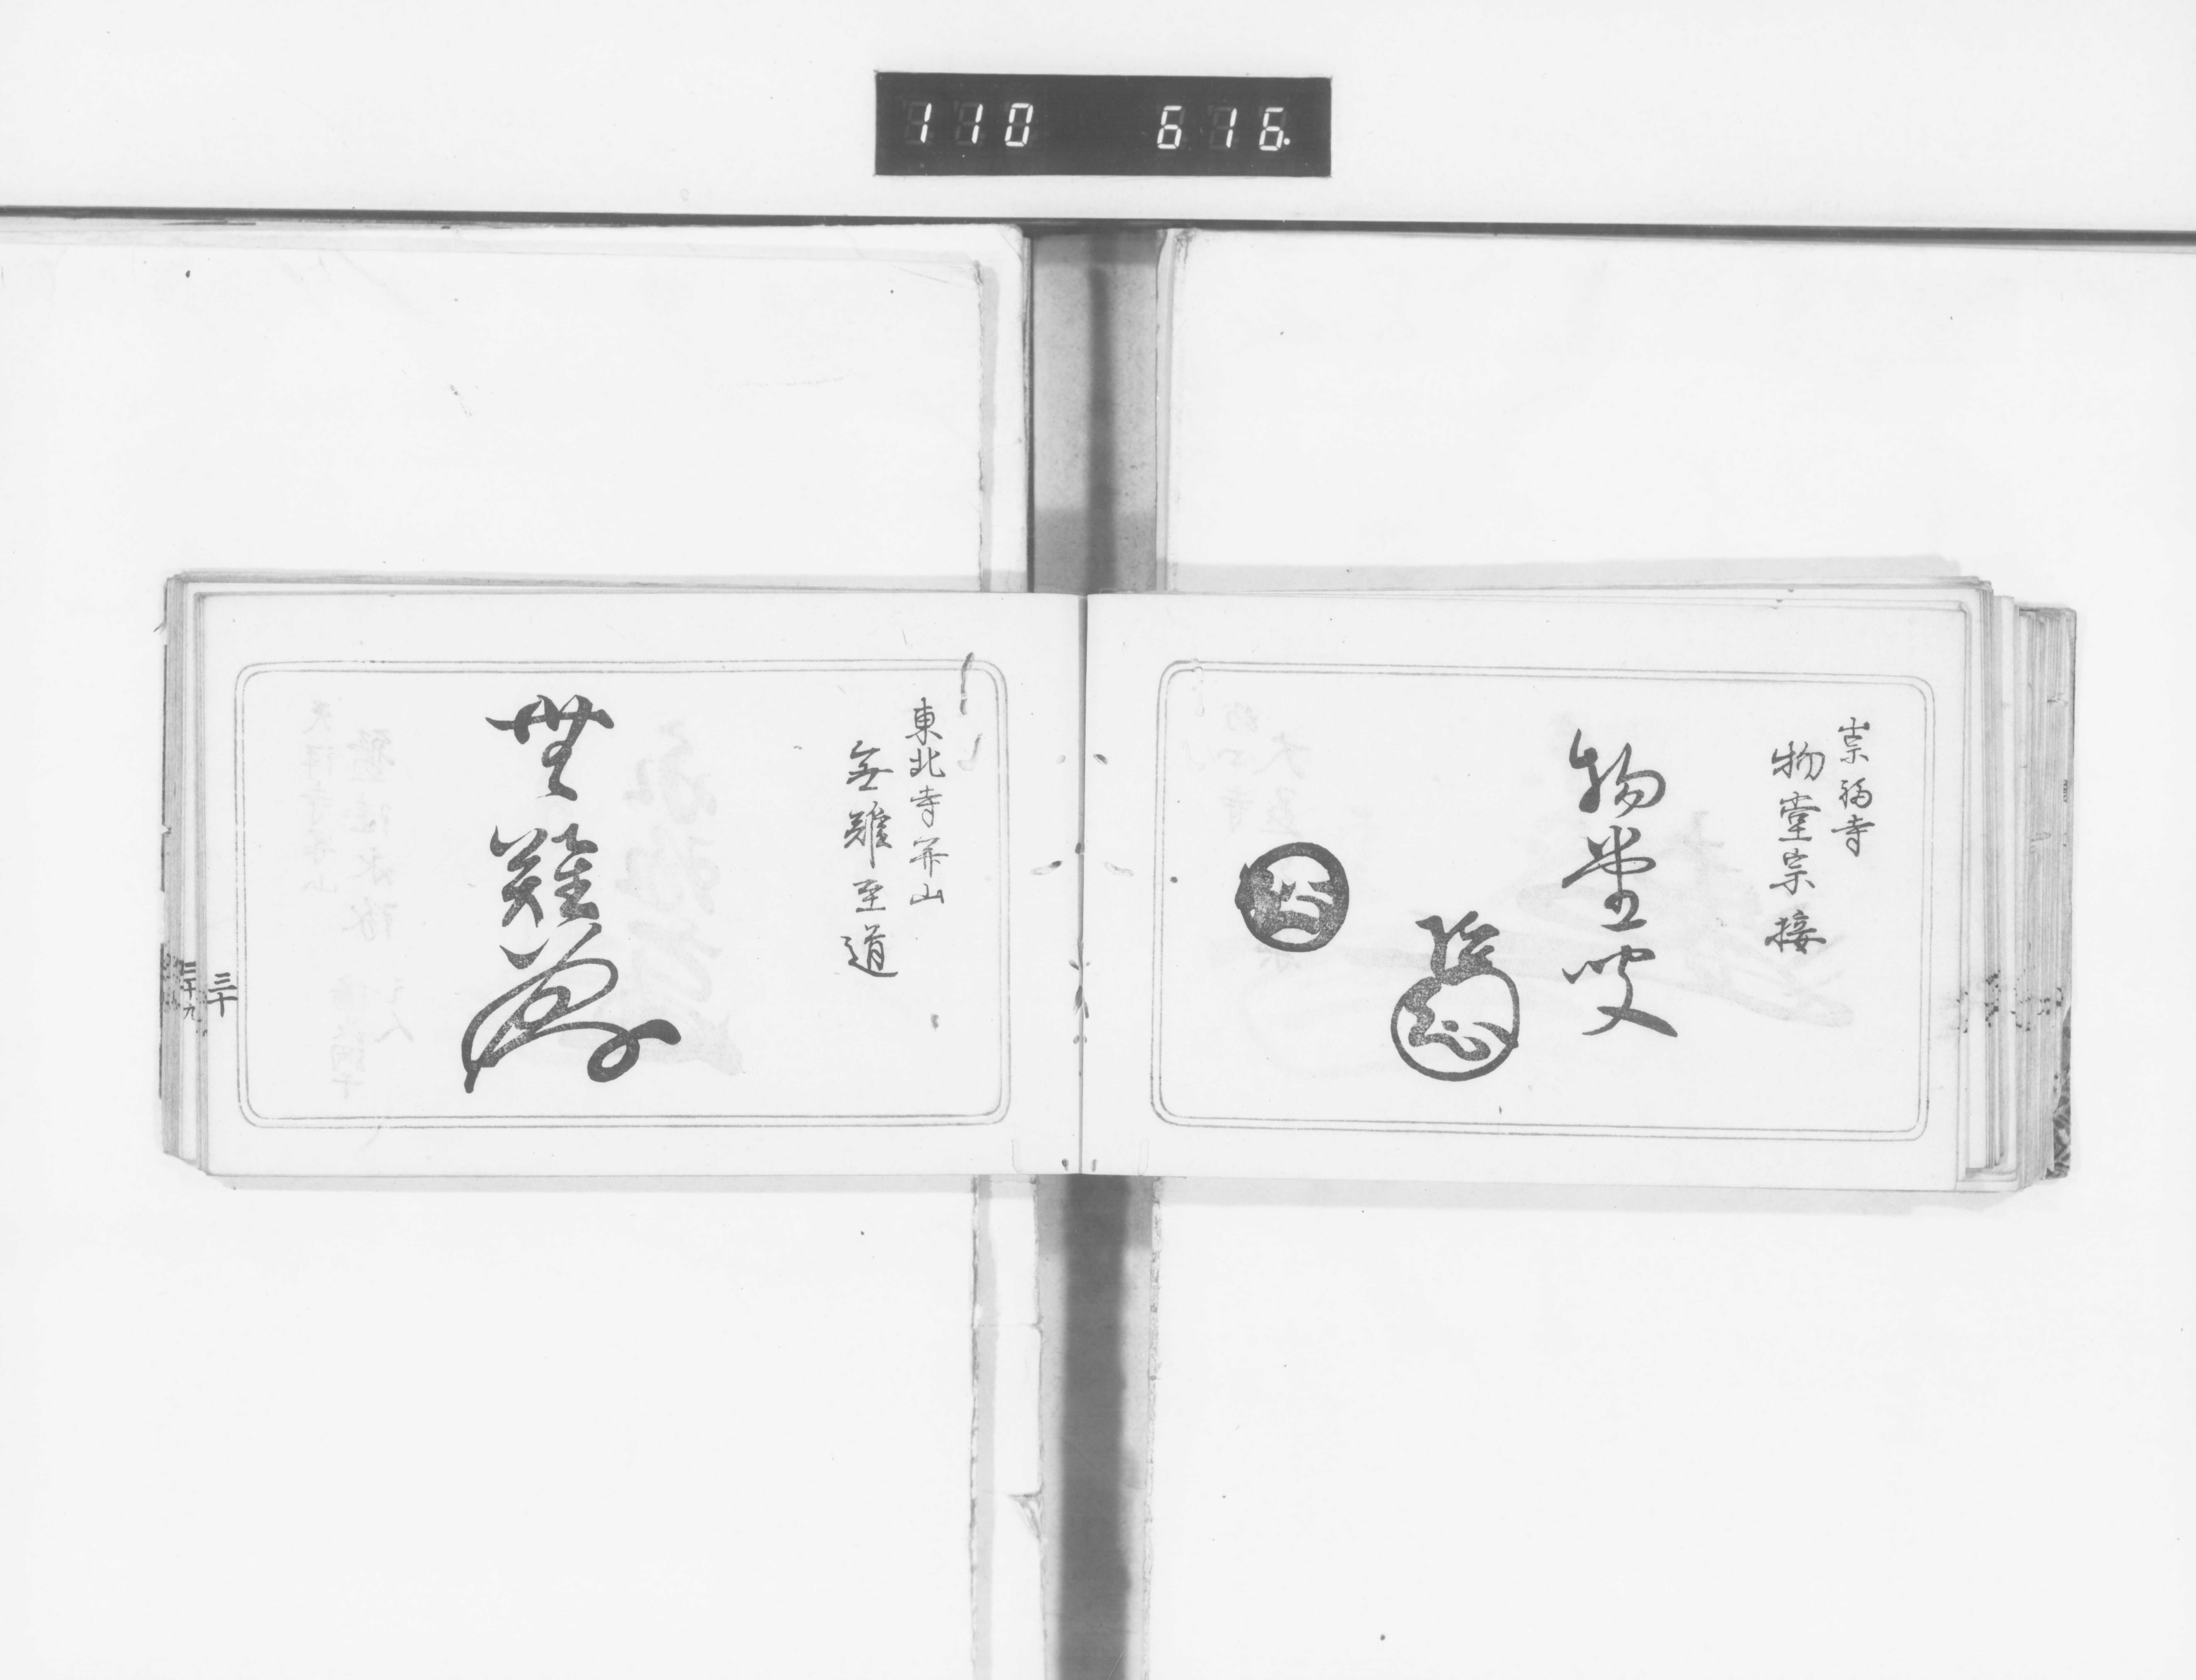 110 616.
崇福寺
物堂宗接
物堂叟
東北寺开山
無難至道
無難
三十
二十九